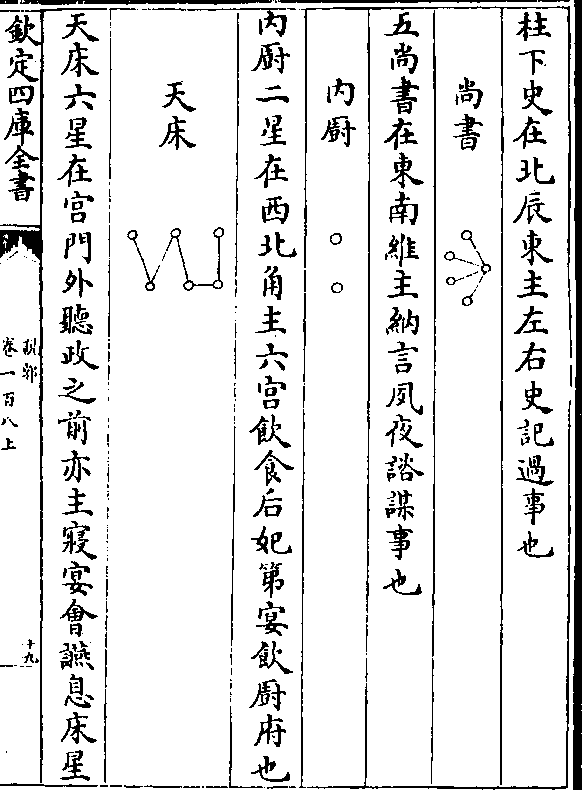 柱下史在北辰東主左右史記過事也
尚書
五尚書在東南維主納言夙夜諮謀事也
内厨
内厨二星在西北角主六宫飲食后妃第宴飲厨府也
天床
天床六星在宫門外聽政之前亦主寢宴會讌息床星
欽定四庫全書
說郛
卷一百八上
十九